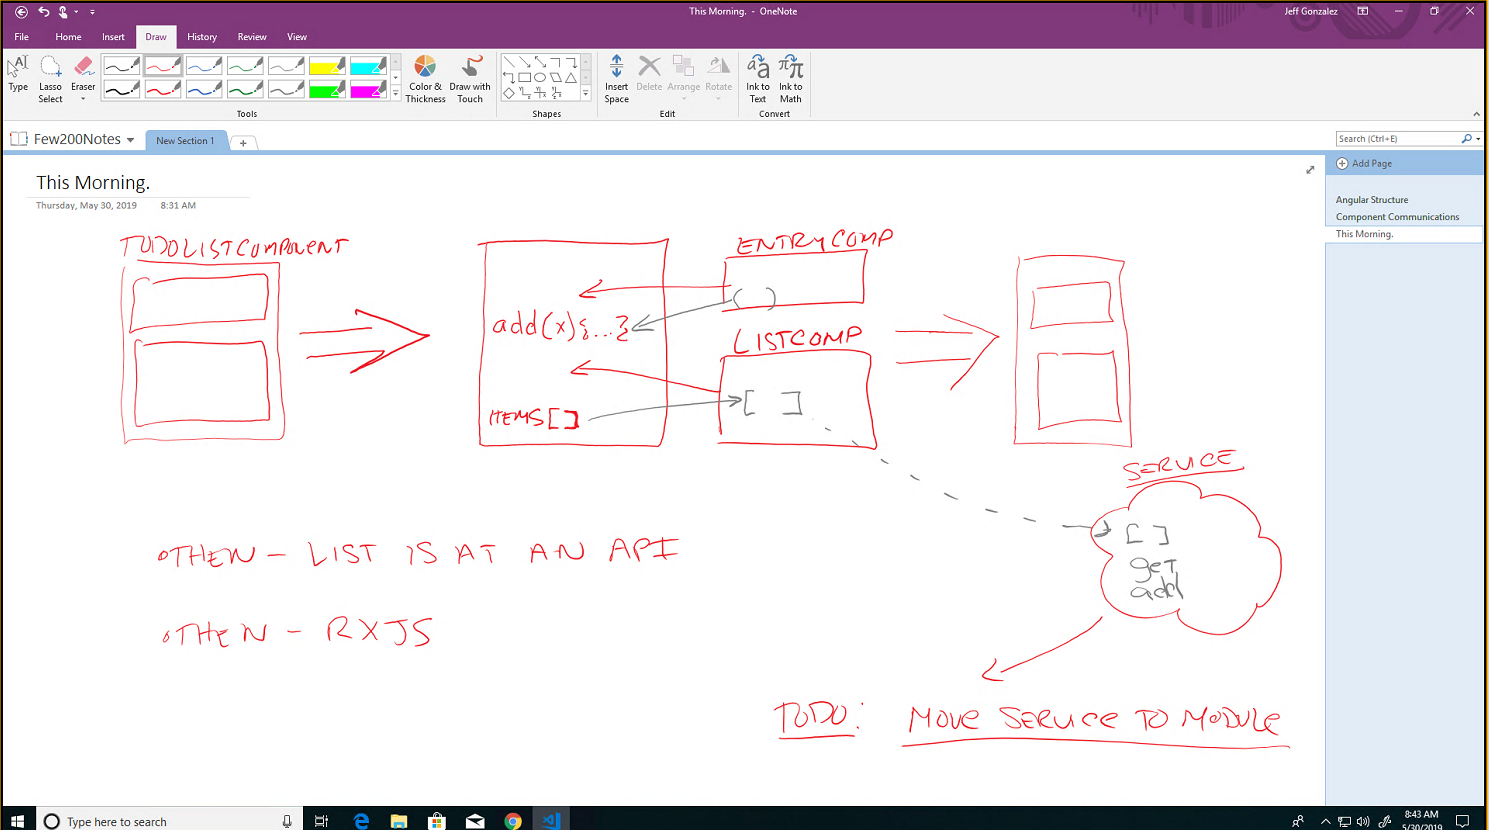 This Morning. - OneNote
Jeff Gonzalez
File Home Insert Draw History Review View
Type
Lasso Select
Eraser
Color & Thickness
Draw with Touch
Insert Space
Delete
Arrange
Rotate
Ink to Text
Ink to Math
Tools
Shapes
Edit
Convert
Few200Notes
New Section 1
Search (Ctrl+E)
Add Page
Angular Structure
Component Communications
This Morning.
This Morning.
Thursday, May 30, 2019 8:31 AM
TODOLISTCOMPONENT
ENTRYCOMP
( )
add(x){...}
LISTCOMP
[ ]
ITEMS[]
SERVICE
[ ]
get
add
•THEN - LIST IS AT AN API
•THEN - RXJS
TODO: MOVE SERVICE TO MODULE
Type here to search
8:43 AM
5/30/2019